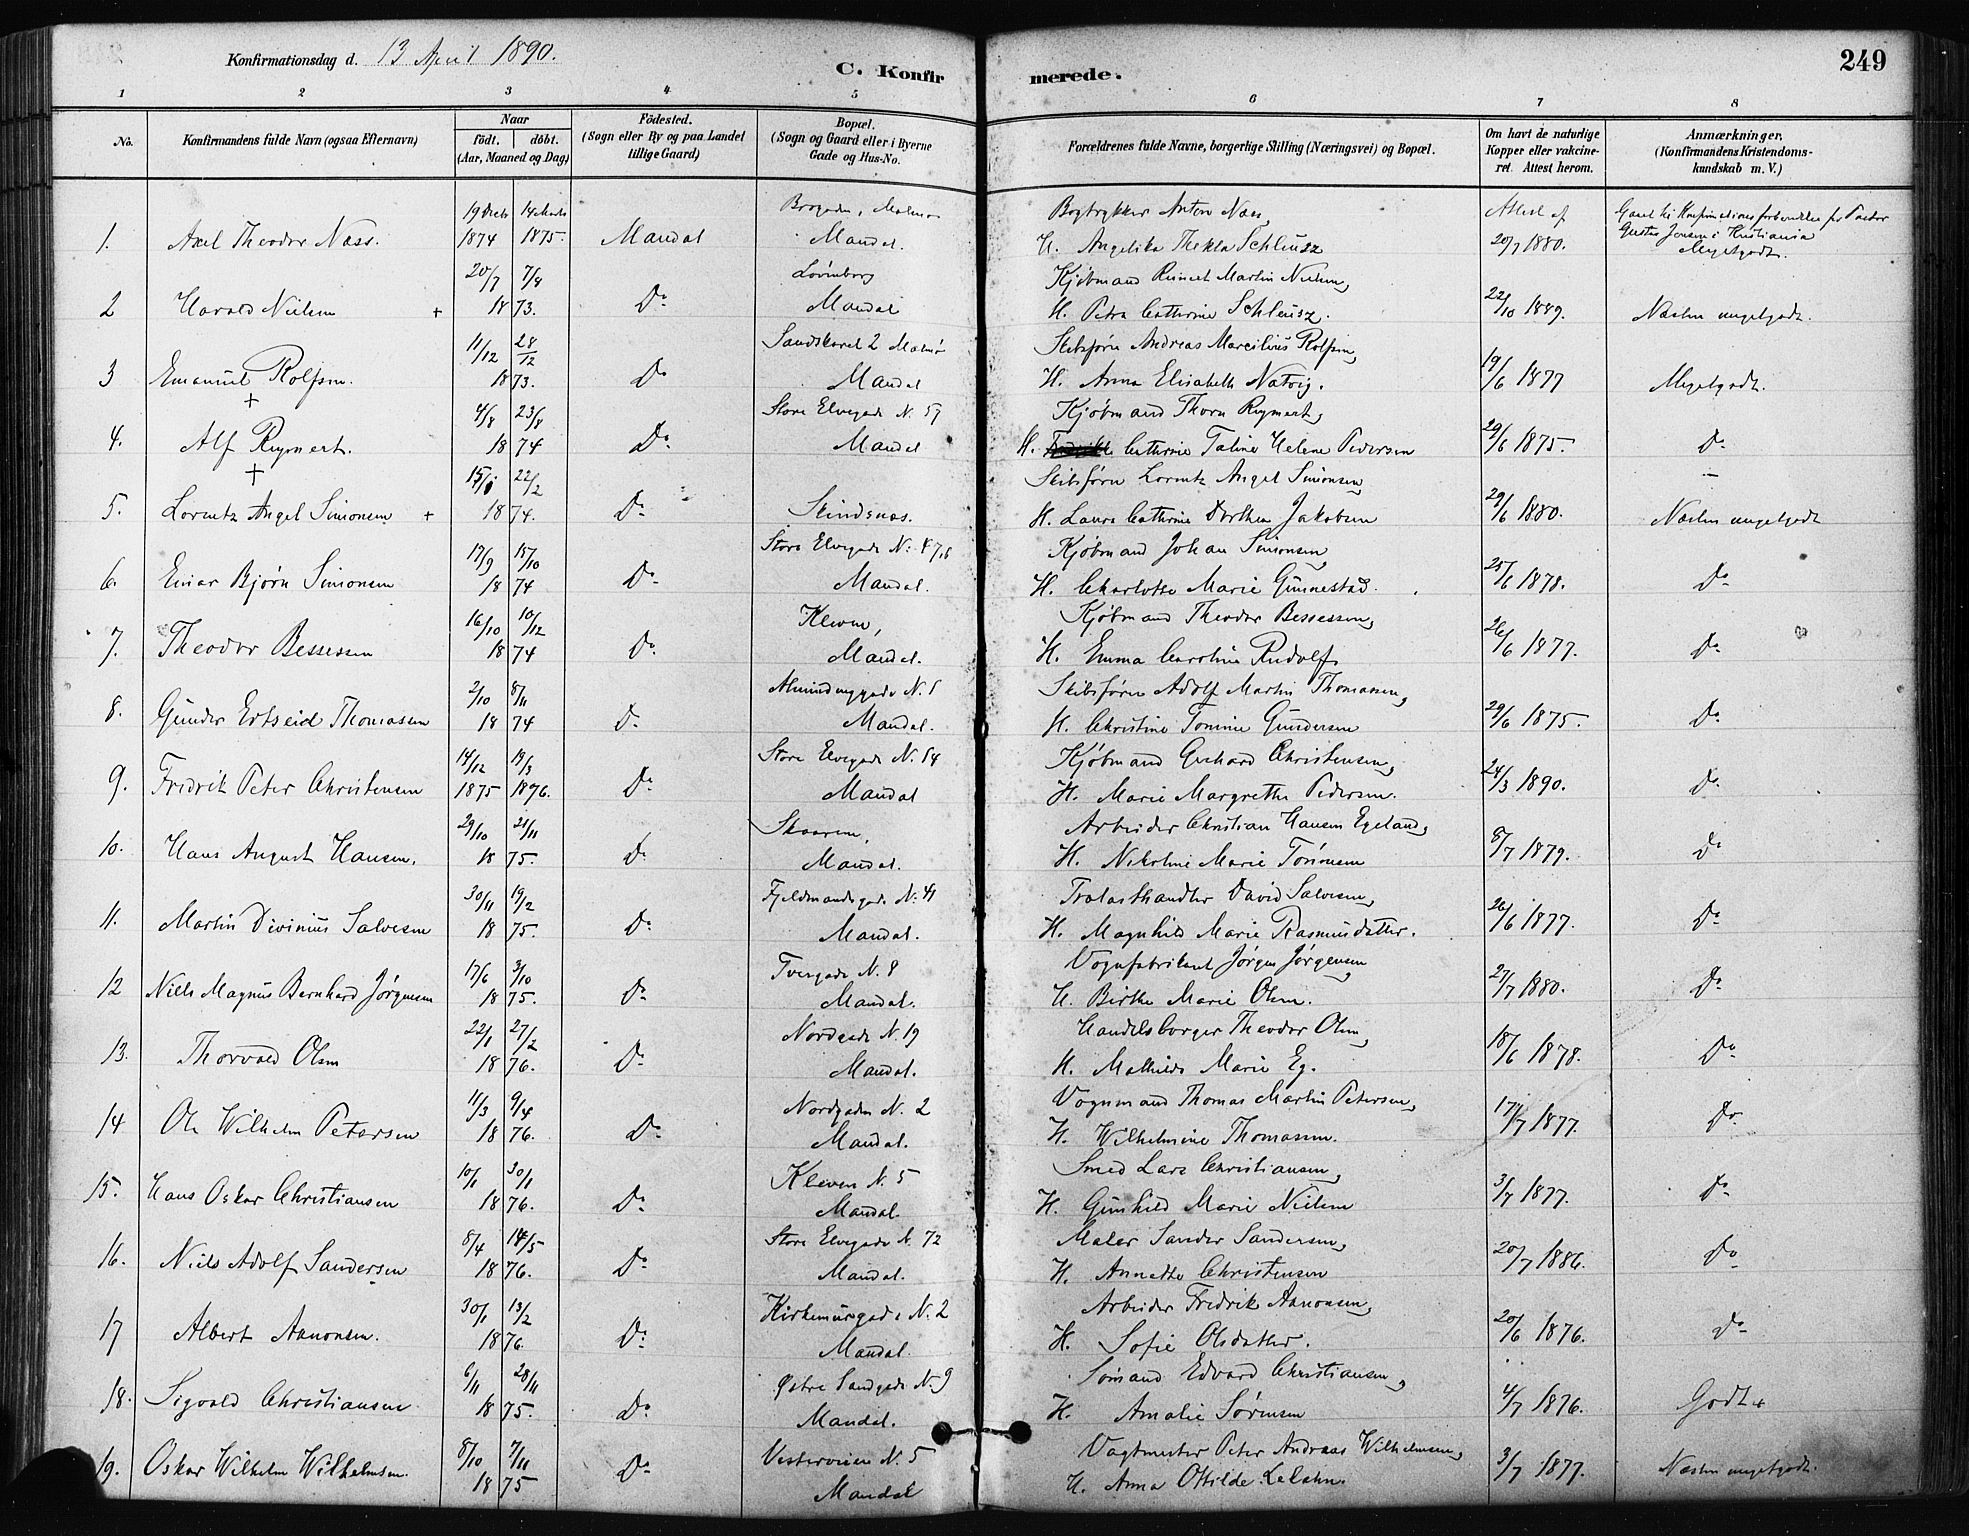 Konfirmationsdag d. 13 April 1890.
C. Konfirmerede.
249
1 2 3 4 5 6 7 8
No.
Konfirmandens fulde Navn (ogsaa Efternavn)
Naar
födt. döbt.
(Aar, Maaned og Dag)
Födested.
(Sogn eller By og paa Landet
tillige Gaard)
Bopæl.
(Sogn og Gaard eller i Byerne
Gade og Hus-No.
Forældrenes fulde Navne, borgerlige Stilling (Næringsvei) og Bopæl.
Om havt de naturlige
Kopper eller vakcine-
ret. Attest herom.
Anmærkninger.
(Konfirmandens Kristendoms-
kundskab m. V.)
19 Decbr 14 Marts Malmø Bogtrykker Anton Næss, Attest af
1. Axel Theodor Næss. 1874 1875. Mandal Mandal. H. Angelika Thekla Schleusz 20/7 1880. Gustav Jensen i Kristiania
Megetgodt.
20/7 7/8 Kjøbmand Martin Nielsen,
2 Harald Nielsen + 18 73. Do Mandal H. Petra Cathrine Schleusz. 22/10 1889. Næsten megetgodt.
11/12 28/12 2 Malmø Skibsfører Andreas Marcilius Rolfsen,
3 Emanuel Rolfsen. 18 73. Do Mandal H. Anna Elisabeth Natvig. 19/6 1877 Megetgodt.
+ 4/8 23/8 Store Elvegade N. 57 Kjøbmand Thorn Reymert,
4. Alf Reymert. 18 74 Do Mandal H. Cathrine Taline Helene Pedersen 29/6 1875. Do
+ 22/2 Skibsfører Lorentz Angel Simonsen,
5. Lorentz Angel Simonsen + 18 74. Do Skindsnæs. H. Laura Cathrine Dorthea Jakobsen 29/6 1880. Næsten megetgodt
17/9 15/10 Store Elvegade N. Kjøbmand Johan Simonsen,
6. Einar Bjørn Simonsen 18 74 Do Mandal. H. Charlotte Marie Gunnestad. 25/6 1878. Do
16/10 10/12 Kleven, Kjøbmand Theodor Bessesen,
7. Theodor Bessesen 18 74 Do Mandal. H. Emma Caroline Rudolf, 26/6 1877. Do
2/10 8/11 Skibsfører Adolf Martin Thomassen,
8. Gunder Ertseid Thomassen 18 74 Do Mandal. H. Christine Tomine Gundersen 29/6 1875. Do
14/12 19/3 Store Elvegade N. 54 Kjøbmand Gerhard Christensen,
9. Fredrik Peter Christensen 1875 1876. Do Mandal H. Marie Margrethe Pedersen. 24/3 1890. Do
29/10 21/11 Skaaren, Arbeider Christian Hansen Egeland,
10. Hans August Hansen. 18 75. Do Mandal. H. Nikoline Marie Tønnesen 8/7 1879. Do
30/11 19/2 Fjeldmandsgade N. 41 David Salvesen,
11. Martin Divinius Salvesen 18 75. Do Mandal. H. Magnhild Marie Rasmusdatter. 26/6 1877. Do
17/6 3/10 Tvergade N. 8 Vognfabrikant Jørgen Jørgensen,
12 Niels Magnus Bernhard Jørgensen 18 75. Do Mandal. H. Birthe Marie Olsen. 27/7 1880. Do
22/1 27/2 Nordgade N. 19 Handelsborger Theodor Olsen,
13. Thorvald Olsen 18 76. Do Mandal. H. Mathilde Marie Eg. 18/6 1878. Do
11/3 9/4 Nordgaden N. 2 Vognmand Thomas Martin Petersen,
14 Ole Wilhelm Petersen 18 76. Do Mandal. H. Wilhelmine Thomassen. 17/7 1877. Do
10/1 30/1 Kleven N. 5 Smed Lars Christiansen,
15. Hans Oskar Christiansen 18 76. Do Mandal. H. Gunhild Marie Nielsen 3/7 1877. Do
8/4 14/5 Store Elvegade N. 72 Maler Sander Sandersen,
16. Niels Adolf Sandersen 18 76. Do Mandal. H. Annette Christensen 20/7 1886. Do
30/1 13/2 Kirkemursgade N. 2 Arbeider Fredrik Aanonsen,
17 Albert Aanonsen. 18 76. Do Mandal. H. Sofie Olsdatter. 20/6 1876. Do
6/11 28/11 Østre Sandgade N. 9 Sømand Edvard Christiansen,
18. Sigvald Christiansen 18 75. Do Mandal. H. Amalie Sørensen 4/7 1876. Godt
8/10 7/11 N. 5 Vagtmester Peter Andreas Wilhelmsen,
19. Oskar Wilhelm Wilhelmsen. 18 75 Do Mandal H. Anna Otilde 3/7 1877. Næsten megetgodt.